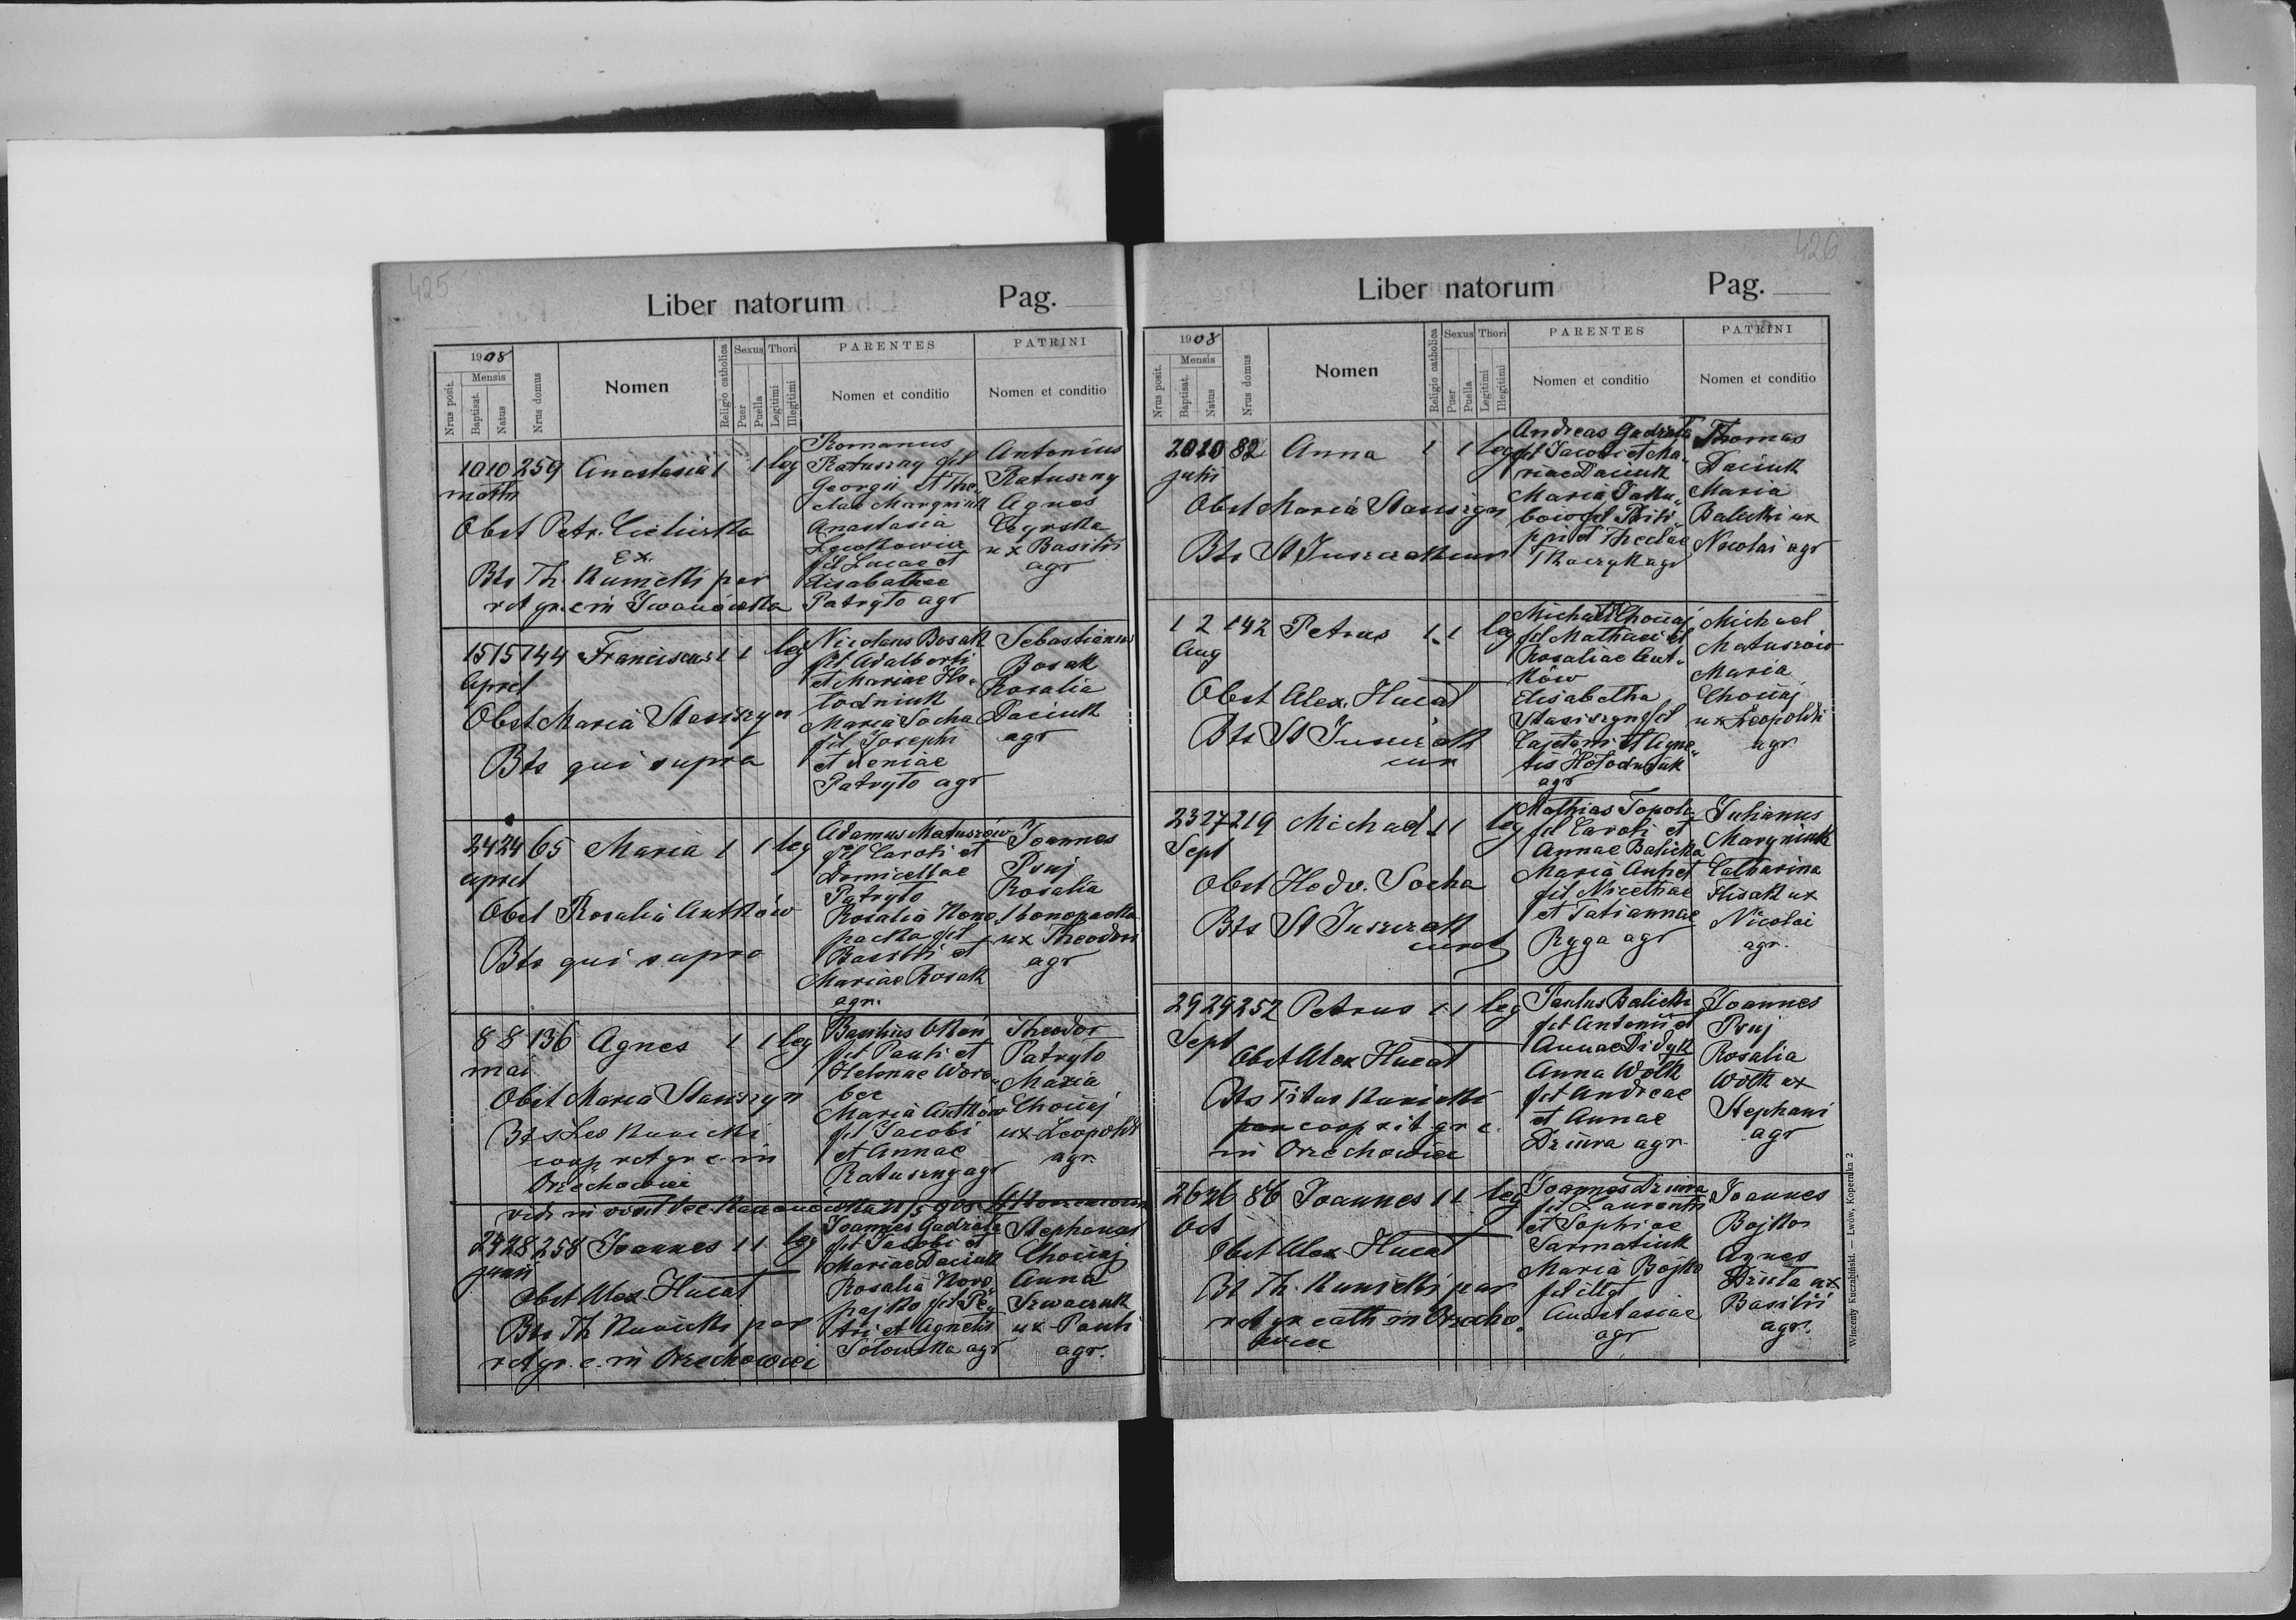 425
Liber natorum Pag.
1908
Mensis
Nrus posit.
Baptisat.
Natus
Nrus domus
Nomen
Religio catholica
Sexus
Puer
Puella
Thori
Legitimi
Illegitimi
PARENTES
Nomen et conditio
PATRINI
Nomen et conditio
10 10 259 Anastasia 1 1 leg
Obst Petr.
Ex.
Bts Th. Kunicki par
rit gr. c in Iwanówka
Romanus
Ratuszny fil
Georgii et The-
clae Maryniuk
Anastasia
fil Lucae et
Elisabethae
Patryło agr
Antonius
Ratuszny
Agnes
ux Basilii
agr
15 15 144 Franciscus 1 1 leg
April
Obst Maria Stasiszyn
Bts qui supra
Nicolaus Bosak
fil Adalberti
et Mariae Ho-
łodniuk
Maria Socha
fil Josephi
et Xeniae
Patryło agr
Sebastianus
Bosak
Rosalia
Daciuk
agr
24 24 65 Maria 1 1 leg
april
Obst Rosalia Antków
Bts qui supra
Adamus Matuszów
fil Caroli et
Domicellae
Patryło
Rosalia Kono-
packa fil
Basilii et
Mariae Bosak
agr.
Joannes
Psuj
Rosalia
Konopacka
ux Theodori
agr
8 8 136 Agnes 1 1 leg
mai
Obst Maria Stasiszyn
Bts Leo Kunicki
coop rit gr c in
Orzechowiec
Basilius Okoń
fil Pauli et
Helenae Woro-
bec
Maria Antków
fil Jacobi
et Annae
Ratuszny agr
Theodor
Patryło
Maria
Choinaj
ux Leopoldi
agr.
24 28 258 Joannes 1 1 leg
junii
Obst Alex. Hucał
Bts Th Kunicki par
rit gr. c. in Orzechowiec
Joannes Gadziała
fil Jacobi et
Mariae Daciuk
Rosalia Koro-
pajko fil Pe-
tri et Agnetis
Sołowska agr
Stephanus
Choinaj
Anna
Szwaczuk
ux Pauli
agr.
426
Liber natorum Pag.
1908
Mensis
Nrus posit.
Baptisat.
Natus
Nrus domus
Nomen
Religio catholica
Sexus
Puer
Puella
Thori
Legitimi
Illegitimi
PARENTES
Nomen et conditio
PATRINI
Nomen et conditio
20 20 82 Anna 1 1 leg
julii
Obst Maria Stasiszyn
Bts St Juszczak cur
Andreas Gadziała
fil Jacobi et Ma-
riae Daciuk
Maria Jaku-
bów fil Phili-
ppi et Theclae
Tkaczyk agr
Thomas
Daciuk
Maria
Balicki ux
Nicolai agr
1 2 142 Petrus 1 1 leg
Aug
Obst Alex. Hucał
Bts St Juszczak
cur
Michael Choinaj
fil Mathaei et
Rosaliae Ant-
ków
Elisabetha
Stasiszyn fil
Cajetani et Agne-
tis Hołodniuk
agr
Michael
Matuszów
Maria
Choinaj
ux Leopoldi
agr.
23 27 219 Michael 1 1 leg
Sept
Obst Hedv. Socha
Bts St Juszczak
curat
Mathias Topola
fil Caroli et
Annae Balicka
Maria
fil Nicethae
et Tatiannae
Ryga agr
Julianus
Maryniuk
Catharina
Flisak ux
Nicolai
agr.
29 29 252 Petrus 1 1 leg
Sept
Obst Alex Hucał
Bts Titus Kunicki
par coop rit. gr c.
in Orzechowiec
Paulus Balicki
fil Antonii et
Annae Didyk
Anna Wołk
fil Andreae
et Annae
Dziura agr.
Joannes
Psuj
Rosalia
Wołk ux
Stephani
agr
26 26 86 Joannes 1 1 leg
Oct
Obst Alex Hucał
Bt Th. Kunicki par
rit gr cath in Orzecho-
wiec
Joannes Dziura
fil Laurentii
et Sophiae
Sarmatiuk
Maria Bojko
fil illeg
Anastasiae
agr
Joannes
Bojko
Agnes
Dziuła ux
Basilii
agr.
Wincenty Kuczabiński. — Lwów, Kopernika 2